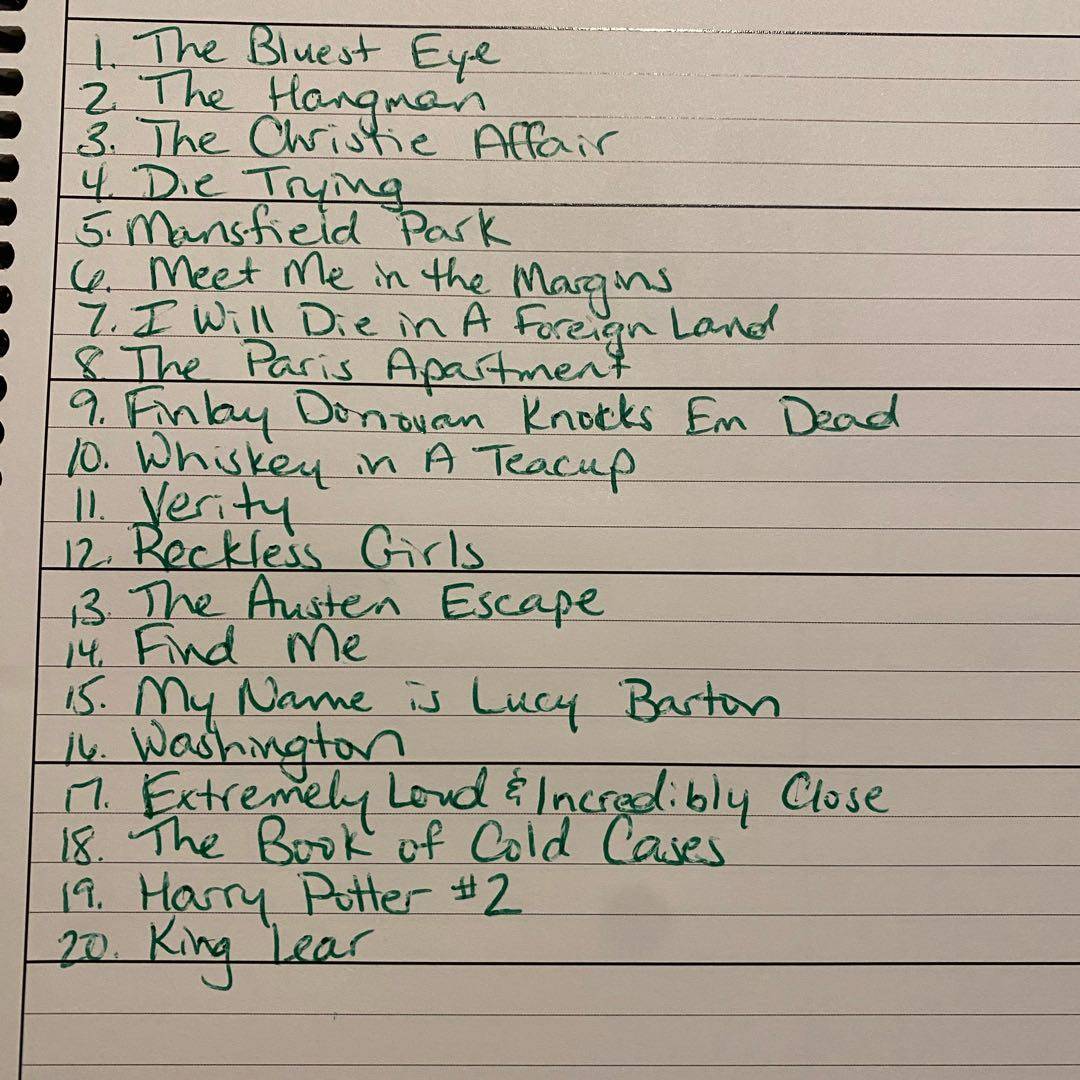 1. The Bluest Eye
2. The Hangman
3. The Christie Affair
4. Die Trying
5. Mansfield Park
6. Meet Me in the Margins
7. I Will Die in A Foreign Land
8. The Paris Apartment
9. Finlay Donovan Knocks Em Dead
10. Whiskey in A Teacup
11. Verity
12. Reckless Girls
13. The Austen Escape
14. Find Me
15. My Name is Lucy Barton
16. Washington
17. Extremely Loud & Incredibly Close
18. The Book of Cold Cases
19. Harry Potter #2
20. King Lear